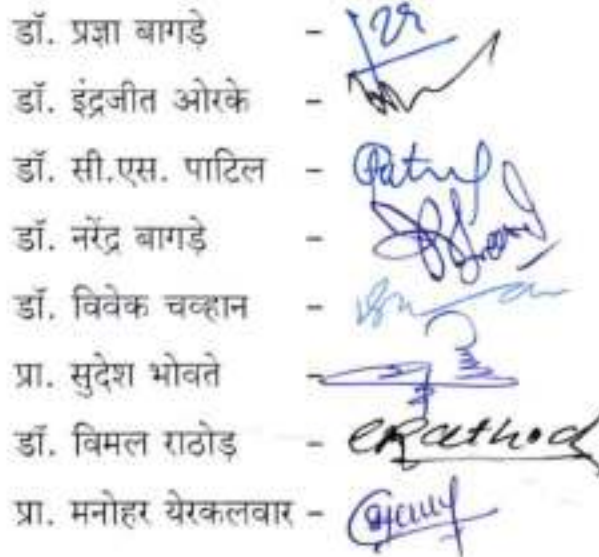 डॉ. प्रज्ञा बागडे -
डॉ. इंद्रजीत ओरके -
डॉ. सी.एस. पाटिल - Patil
डॉ. नरेंद्र बागडे -
डॉ. विवेक चव्हान -
प्रा. सुदेश भोवते -
डॉ. विमल राठोड़ - Rathod
प्रा. मनोहर येरकलवार -